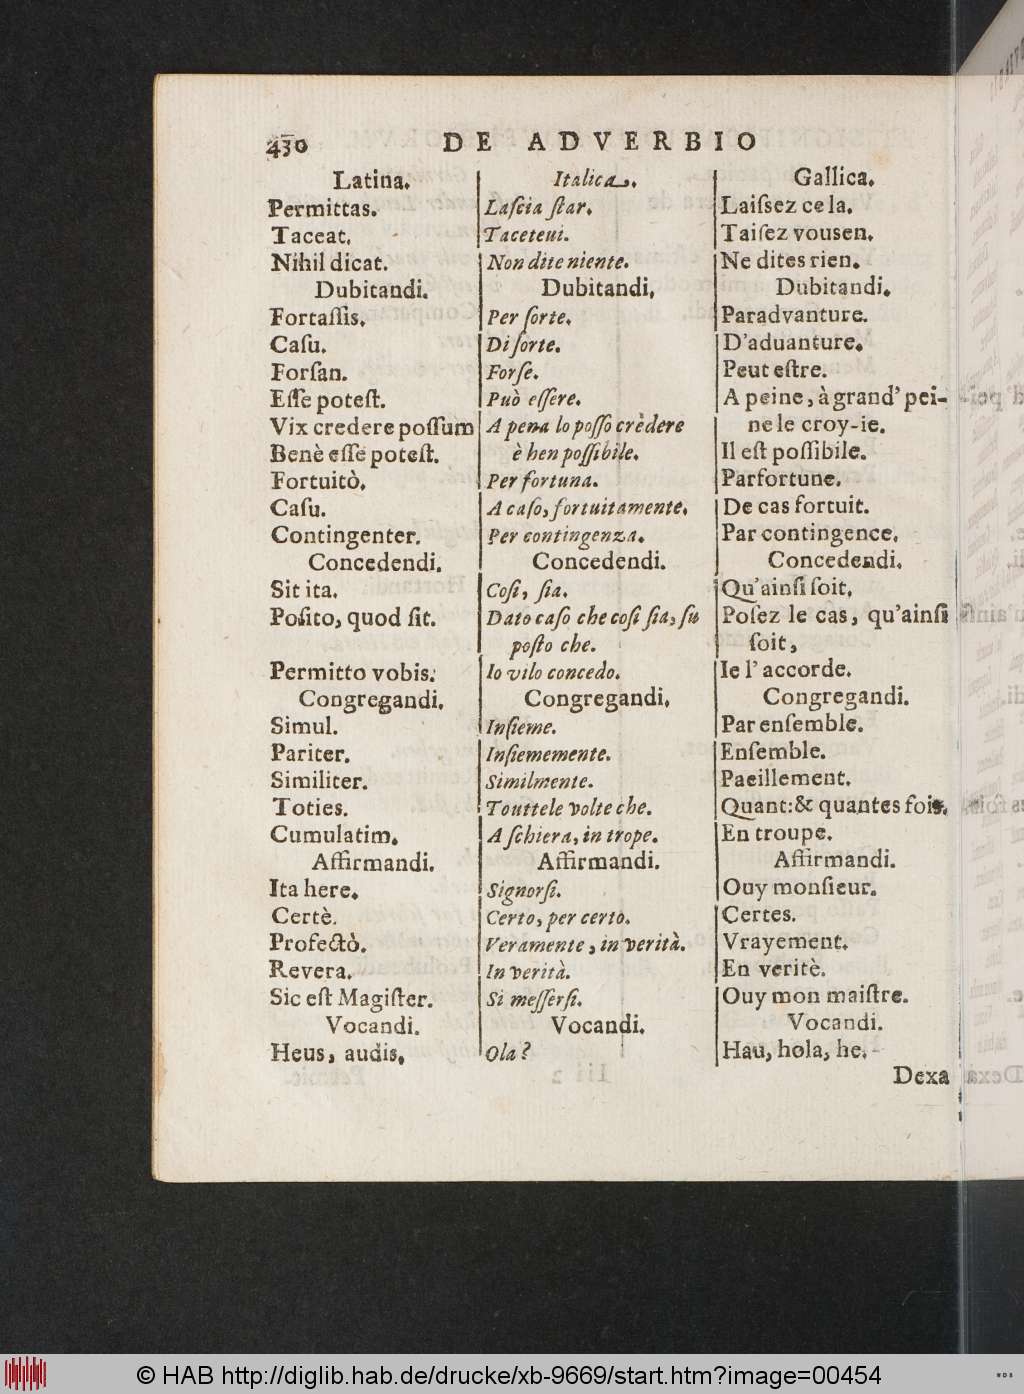 430 DE ADVERBIO
Latina. Italica. Gallica.
Permittas. Laſcia ſtar. Laiſsez ce la.
Taceat. Taceteui. Taiſez vousen.
Nihil dicat. Non dite niente. Ne dites rien.
Dubitandi. Dubitandi, Dubitandi.
Fortaſſis. Per ſorte. Paradvanture.
Caſu. Di ſorte. D'aduanture.
Forſan. Forſe. Peut eſtre.
Eſſe poteſt. Può eſſere. A peine, à grand' pei-
Vix credere poſſum A pena lo poſſo crèdere ne le croy-ie.
Benè eſſe poteſt. è hen poſſibile. Il eſt poſſibile.
Fortuitò. Per fortuna. Parfortune.
Caſu. A caſo, fortuitamente. De cas fortuit.
Contingenter. Per contingenza. Par contingence.
Concedendi. Concedendi. Concedendi.
Sit ita. Coſi, ſia. Qu'ainſi ſoit,
Poſito, quod ſit. Dato caſo che coſi ſia, ſu Poſez le cas, qu'ainſi
poſto che. ſoit,
Permitto vobis. Io vilo concedo. Ie l'accorde.
Congregandi. Congregandi, Congregandi.
Simul. Inſieme. Par enſemble.
Pariter. Inſiememente. Enſemble.
Similiter. Similmente. Paeillement.
Toties. Touttele volte che. Quant:& quantes fois.
Cumulatim. A ſchiera, in trope. En troupe.
Affirmandi. Affirmandi. Affirmandi.
Ita here. Signorſi. Ouy monſieur.
Certè. Certo, per certo. Certes.
Profectò. Veramente, in verità. Vrayement.
Revera. In verità. En veritè.
Sic eſt Magiſter. Si meſſerſi. Ouy mon maiſtre.
Vocandi. Vocandi. Vocandi.
Heus, audis, Ola? Hau, hola, he.
Dexa
© HAB http://diglib.hab.de/drucke/xb-9669/start.htm?image=00454